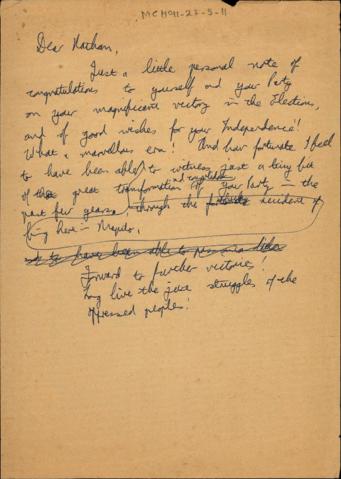 MCH91-27-5-11
Dear Nathan,
Just a little personal note of
congratulations to yourself and your Party
on your magnificent victory in the Elections,
and of good wishes for your Independence!
What a marvellous era! And how fortunate I feel
to have been able to witness just a tiny bit
of the great transformation of your Party – the
past few years, through the accident of
being here in Maputo.
Forward to further victories!
Long live the just struggles of the
oppressed peoples!